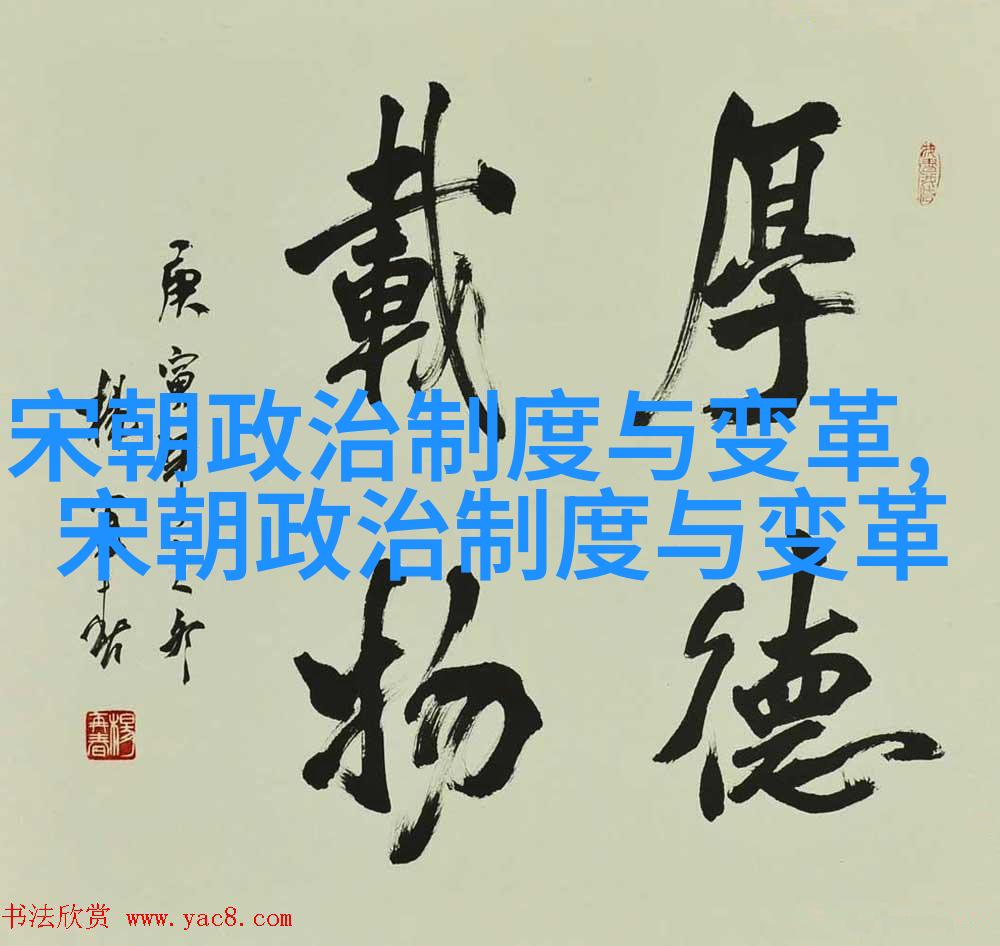 厚德
載物
庚寅
楊再春
宋朝政治制度与变革,
宋朝政治制度与变革
书法欣赏 www.yac8.com